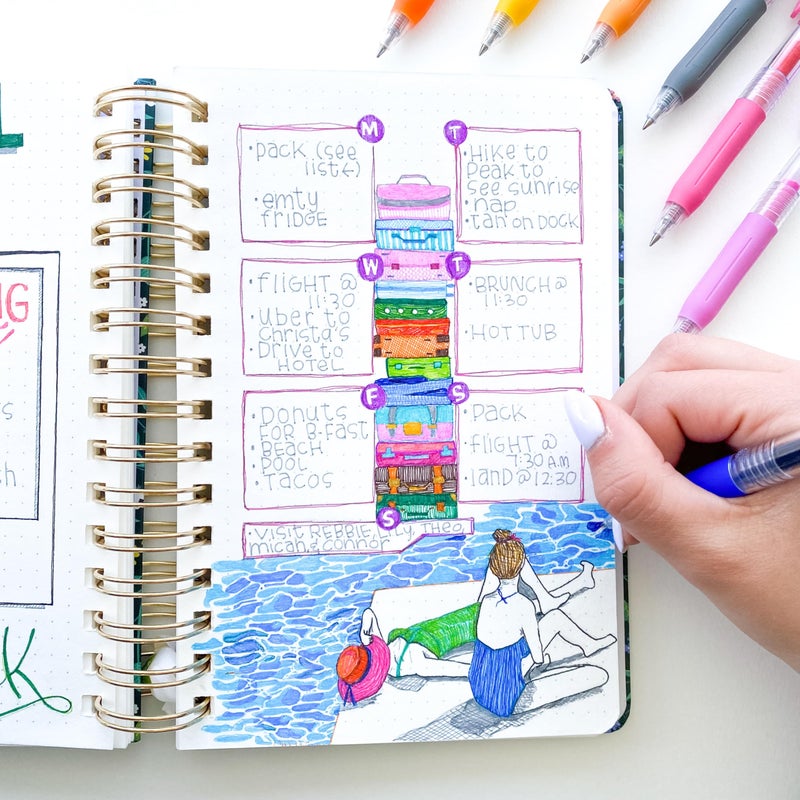 L
NG
s
ch.
K
M
• pack (see
list←)
• emty
fridge
T
• Hike to
peak to
see sunrise
• nap
• tan on dock
W
• flight @
11:30
• uber to
christa's
• Drive to
Hotel
T
• BRUNCH @
11:30
• HOT TUB
F
• Donuts
for B-fast
• BEACH
• POOL
• TACOS
S
• Pack
• flight @
7:30 A.M
• land @ 12:30
S
• Visit REBBIE, Lily, Theo,
micah, & connor